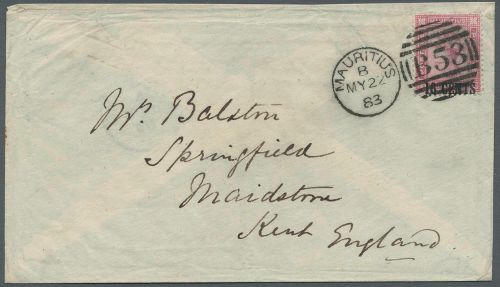 MAURITIUS
B
MY 22
83
B53
16 CENTS
Mrs Balston
Springfield
Maidstone
Kent England.